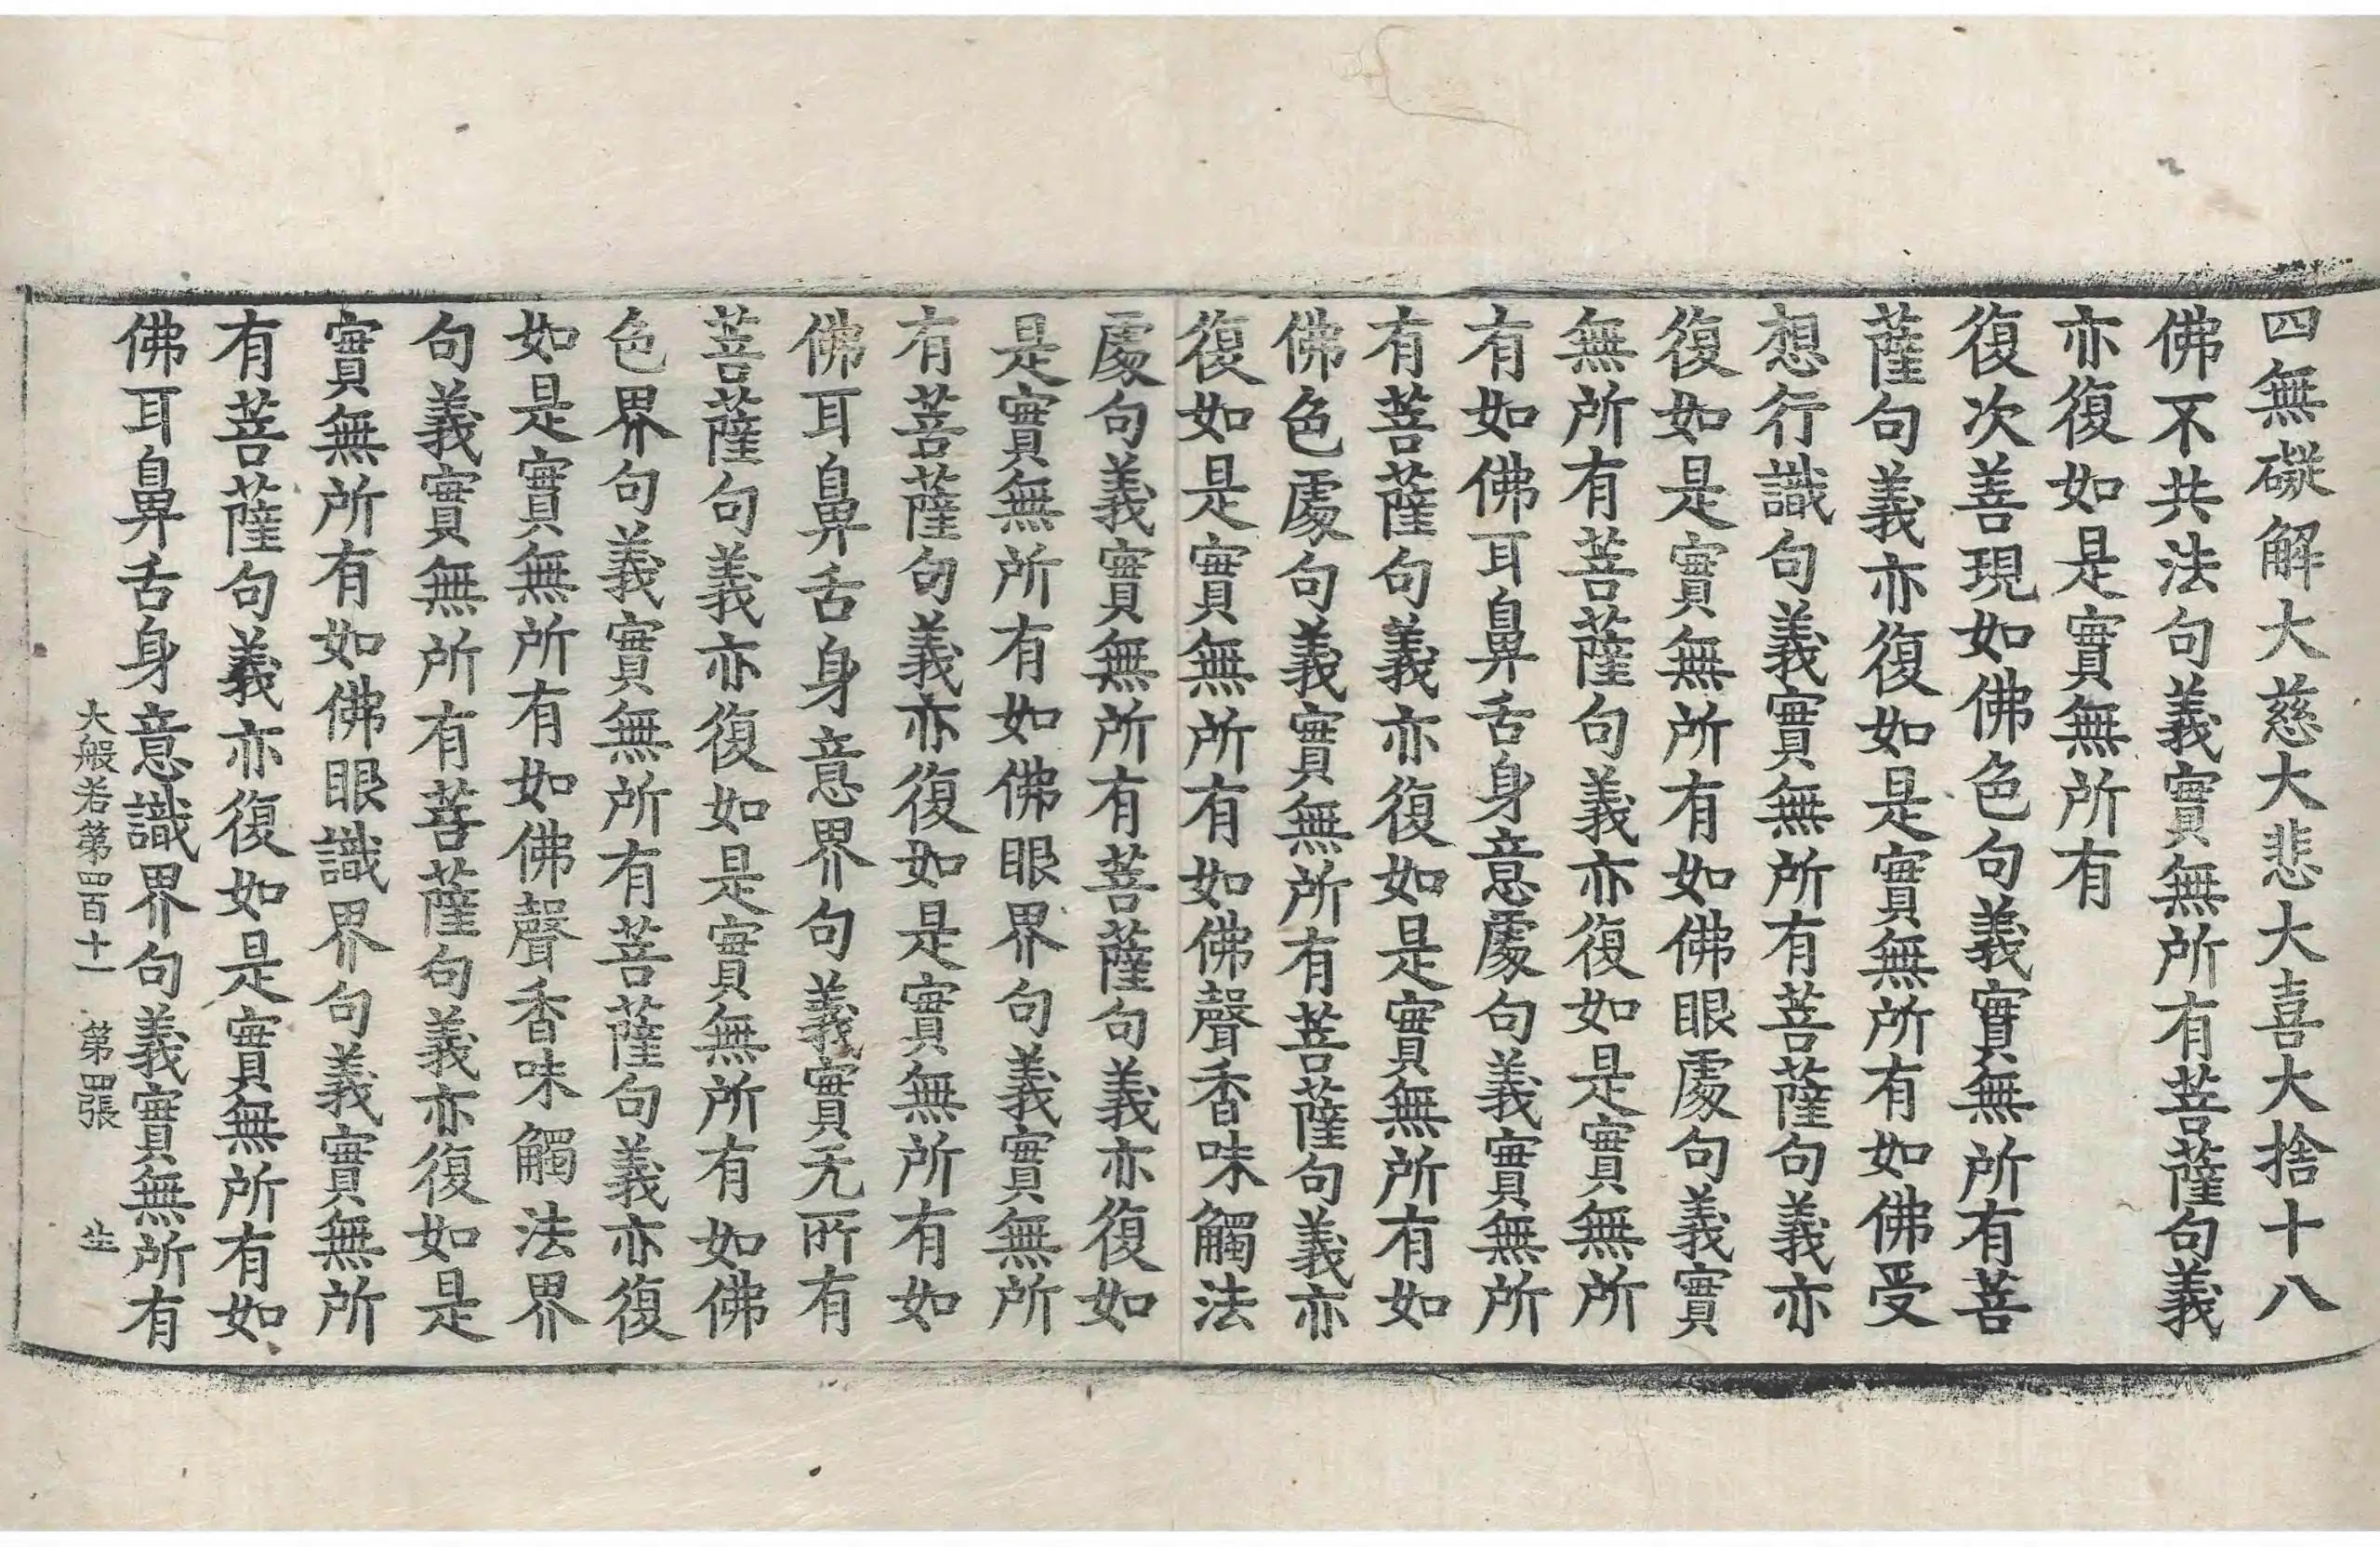 四無礙解大慈大悲大喜大捨十八
佛不共法句義實無所有菩薩句義
亦復如是實無所有
復次善現如佛色句義實無所有菩
薩句義亦復如是實無所有如佛受
想行識句義實無所有菩薩句義亦
復如是實無所有如佛眼處句義實
無所有菩薩句義亦復如是實無所
有如佛耳鼻舌身意處句義實無所
有菩薩句義亦復如是實無所有如
佛色處句義實無所有菩薩句義亦
復如是實無所有如佛聲香味觸法
處句義實無所有菩薩句義亦復如
是實無所有如佛眼界句義實無所
有菩薩句義亦復如是實無所有如
佛耳鼻舌身意界句義實无所有
菩薩句義亦復如是實無所有如佛
色界句義實無所有菩薩句義亦復
如是實無所有如佛聲香味觸法界
句義實無所有菩薩句義亦復如是
實無所有如佛眼識界句義實無所
有菩薩句義亦復如是實無所有如
佛耳鼻舌身意識界句義實無所有
大般若第四百十一 第四張